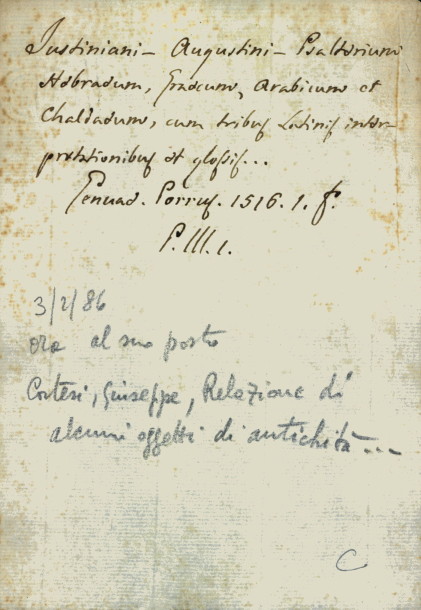 Justiniani - Augustini - Psalterium
Hebraeum, Graecum, Arabicum et
Chaldaeum, cum tribus Latinis inter-
pretationibus et glossis...
Genuae. Porrus. 1516. 1. f.
P. III. 1.
3/2/86
ora al suo posto
Cortesi, Giuseppe, Relazione di
alcuni oggetti di antichità...
C